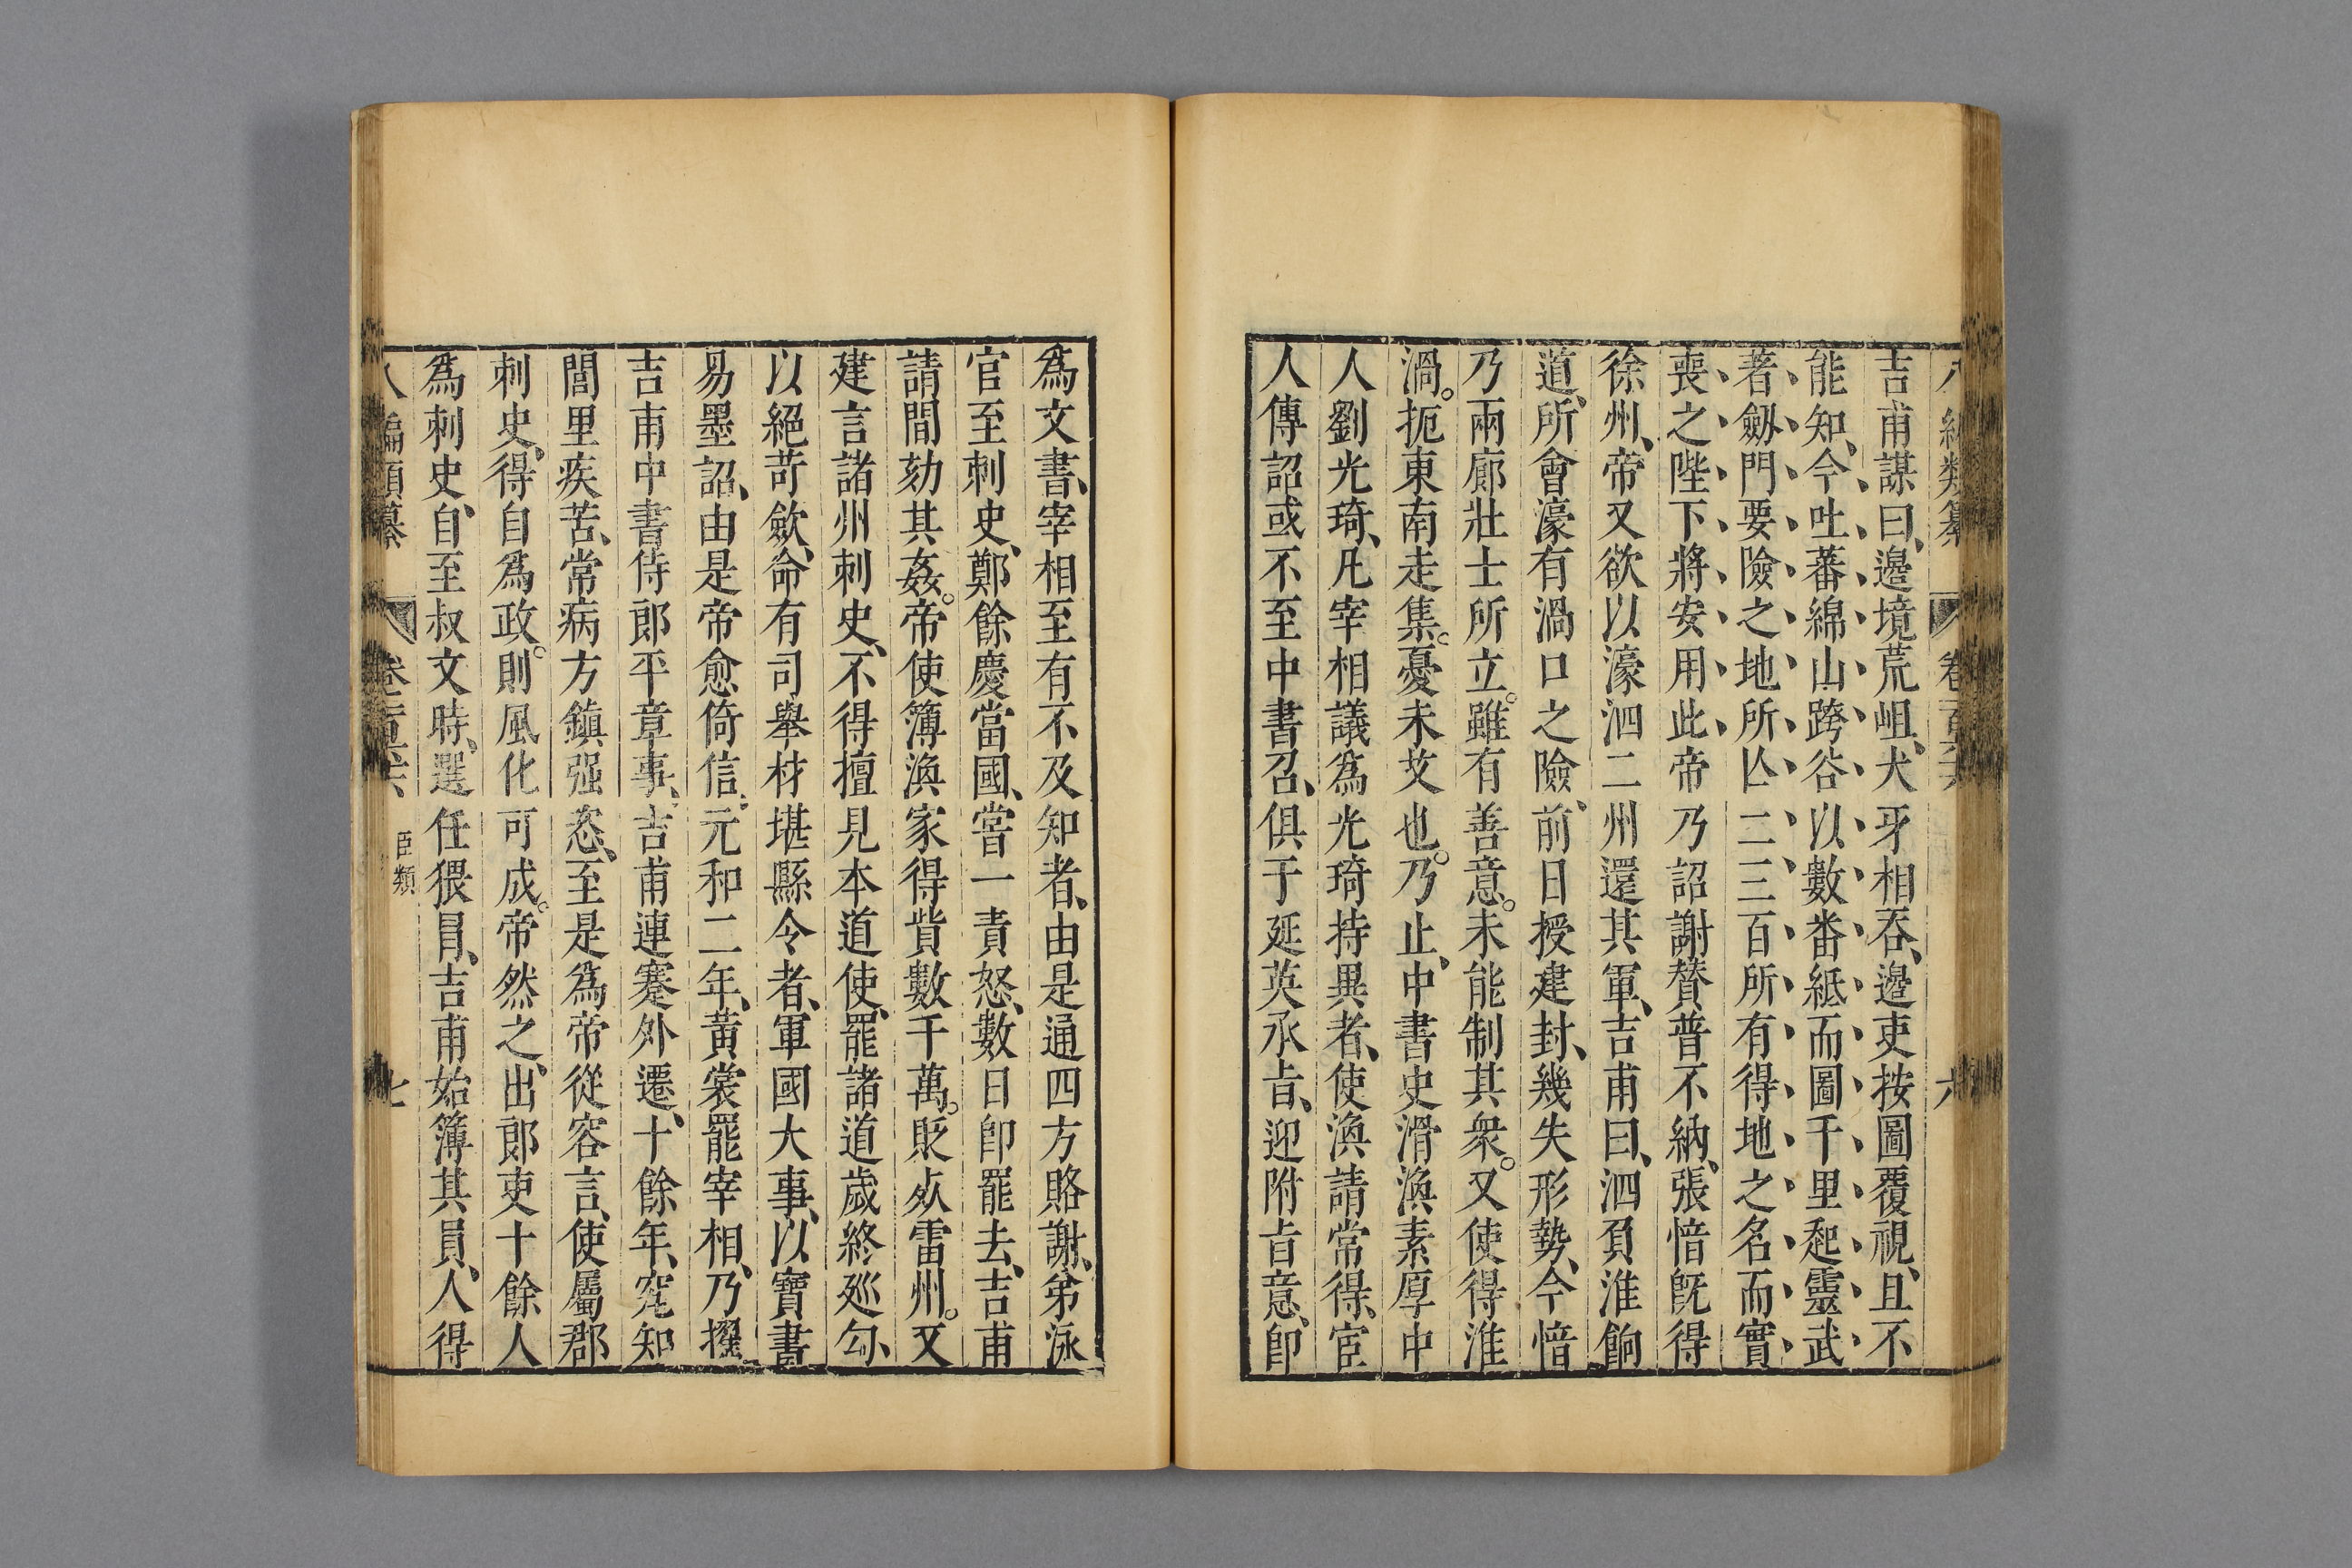 吉甫謀曰、邉境荒岨、犬牙相吞、邉吏按圖覆視、且不
能知、今吐蕃綿山跨谷以數番紙而圖千里起靈武
著劒門要險之地所亾二三百所有得地之名而實
喪之陛下將安用此帝乃詔謝賛普不納、張愔旣得
徐州、帝又欲以濠泗二州還其軍、吉甫曰、泗負淮餉
道、所會濠有渦口之險、前日授建封、幾失形勢、今愔
乃兩廊壯士所立。雖有善意。未能制其衆。又使得淮
渦。扼東南走集。憂未艾也。乃止、中書史滑渙素厚中
人劉光琦、凡宰相議爲光琦持異者、使渙請常得、宦
人傳詔或不至中書召、俱于延英承㫖、迎附㫖意、卽
爲文書、宰相至有不及知者、由是通四方賂謝、弟泳
官至刺史、鄭餘慶當國、嘗一責怒、數日卽罷去、吉甫
請間劾其姦。帝使簿渙家得貲數千萬。貶死雷州。又
建言諸州刺史、不得擅見本道使、罷諸道歲終廵勾、
以絕苛歛、命有司舉材堪縣令者、軍國大事、以寶書
易墨詔、由是帝愈倚信、元和二年、黃裳罷宰相、乃擢
吉甫中書侍郎平章事、吉甫連蹇外遷、十餘年、究知
閭里疾苦、常病方鎮强恣、至是爲帝從容言、使屬郡
刺史、得自爲政。則風化可成。帝然之、出郎吏十餘人
爲刺史、自至叔文時、選任猥冒、吉甫始簿其員、人得
八編類纂 卷二百六 臣類 七